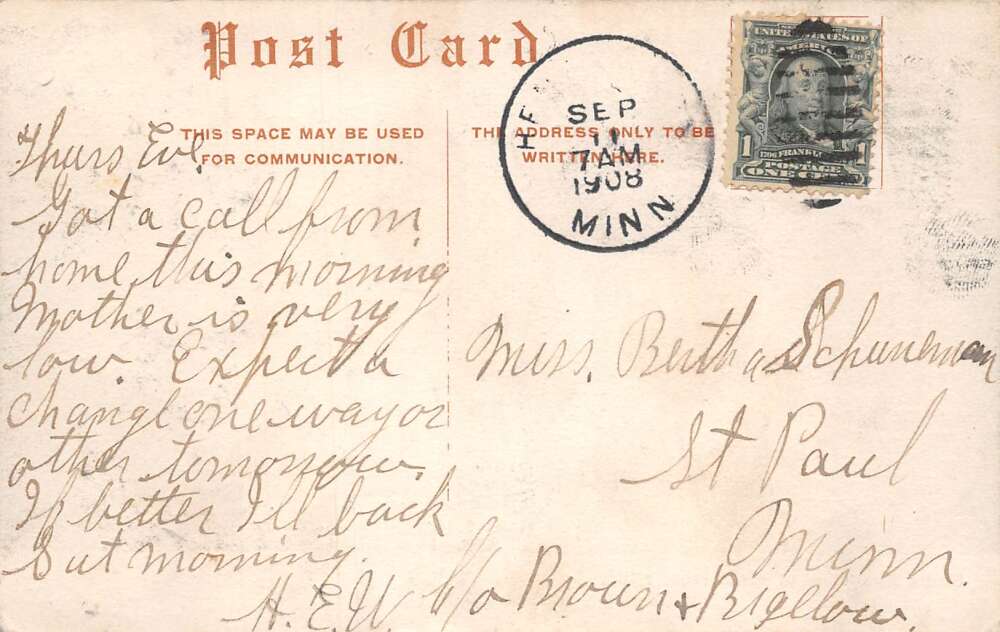 Post Card
THIS SPACE MAY BE USED
FOR COMMUNICATION.
THE ADDRESS ONLY TO BE
WRITTEN HERE.
SEP
11
7AM
1908
MINN
UNITED STATES OF
AMERICA
1
1
POSTAGE
ONE CENT
Thurs Eve.
Got a call from
home this morning
Mother is very
low. Expect a
change one way or
other tomorrow.
If better I'll back
Sat morning.
H.E.W.
Miss. Bertha Schuneman
St Paul
Minn.
c/o Brown + Bigelow.